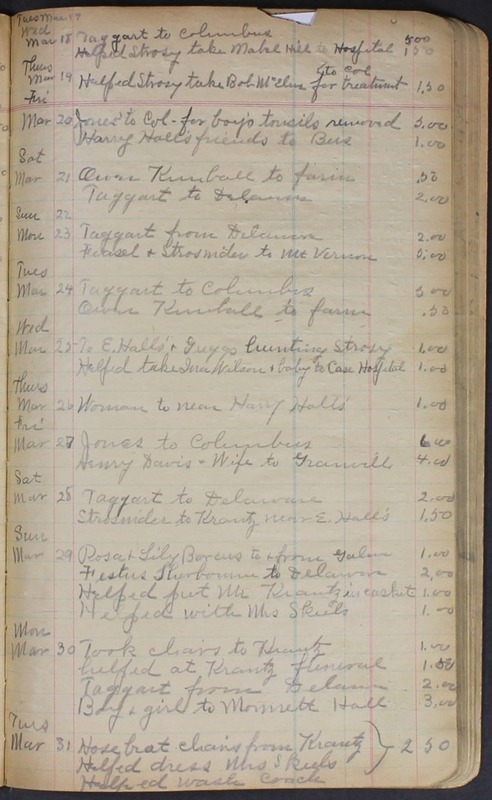 Tues Mar 17
Wed
Mar 18 Taggart to Columbus 5.00
Helped Strosy take Mabel Hill to Hospital 1.50
Thurs to Col.
Mar 19 Helped Strosy take Bob McClur for treatment 1.50
Fri
Mar 20 Jones' to Col - for boy's tonsils removed 5.00
Harry Hall's friends to Bus 1.00
Sat
Mar 21 Owen Kimball to farm .50
Taggart to Delaware 2.00
Sun 22
Mon 23 Taggart from Delaware 2.00
Feasel + Strosnider to Mt Vernon 5.00
Tues
Mar 24 Taggart to Columbus 5.00
Owen Kimball to farm .50
Wed
Mar 25 To E. Hall's + Gregg hunting Strosy 1.00
Helped take Ina Wilson + baby to Case Hospital 1.00
Thurs
Mar 26 Woman to near Harry Halls' 1.00
Fri
Mar 27 Jones to Columbus 6.00
Henry Davis + Wife to Granville 4.00
Sat
Mar 28 Taggart to Delaware 2.00
Strosnider to Krantz near E. Hall's 1.50
Sun
Mar 29 Rosa + Lily Borcus to + from Galena 1.00
Festus Sherbourne to Delaware 2.00
Helped put Mr Krantz in casket 1.00
Helped with Mrs Skeels 1.00
Mon
Mar 30 Took chairs to Krantz 1.00
helped at Krantz funeral 1.50
Taggart from Delaware 2.00
Boy + girl to Monnett Hall 3.00
Tues
Mar 31 Hose brat chairs from Krantz 2 50
Helped dress Mrs Skeels
Helped wash coach